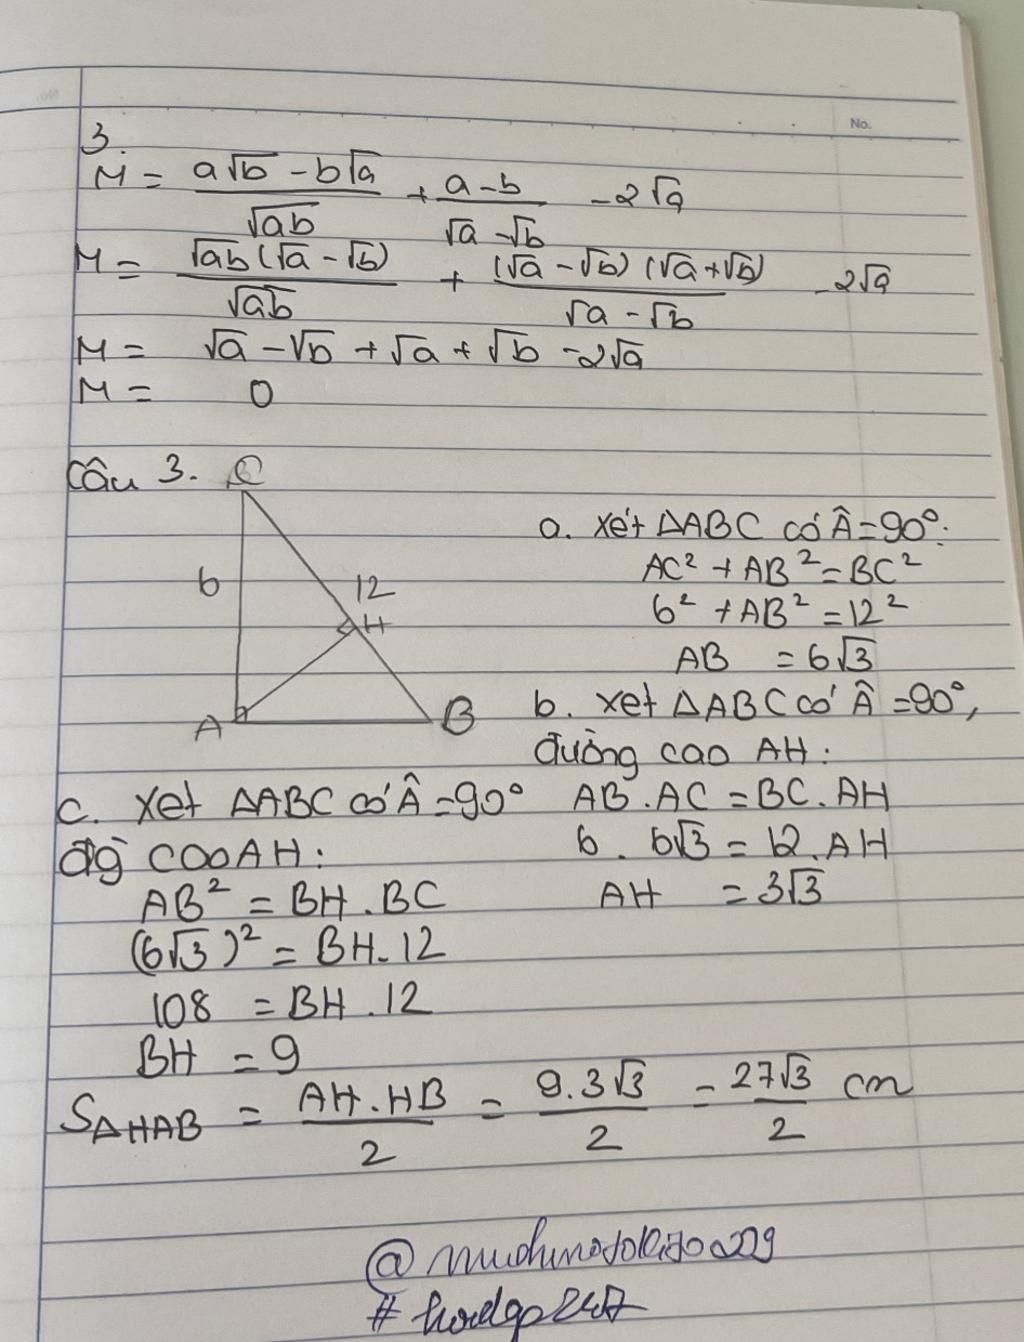 No.
3.
M = a√b - b√a / √ab + a - b / √a - √b - 2√a
M = √ab (√a - √b) / √ab + (√a - √b) (√a + √b) / √a - √b - 2√a
M = √a - √b + √a + √b - 2√a
M = 0
Câu 3.
C
6
12
H
A
B
a. Xét ΔABC có Â = 90°:
AC² + AB² = BC²
6² + AB² = 12²
AB = 6√3
b. Xét ΔABC có Â = 90°,
đường cao AH:
AB . AC = BC . AH
6 . 6√3 = 12 . AH
AH = 3√3
c. Xét ΔABC có Â = 90°
đg cao AH:
AB² = BH . BC
(6√3)² = BH . 12
108 = BH . 12
BH = 9
SΔHAB = AH . HB / 2 = 9 . 3√3 / 2 = 27√3 / 2 cm